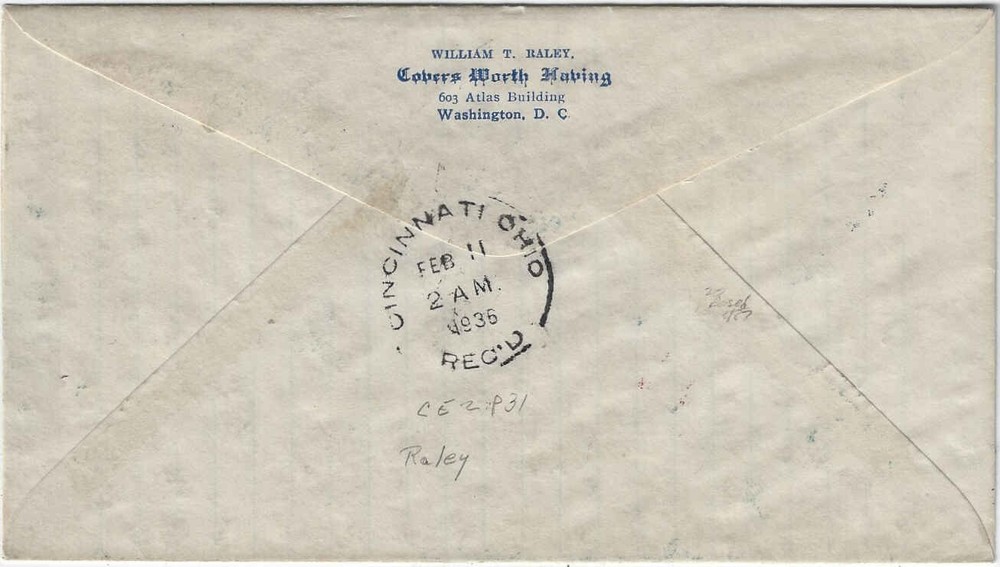 WILLIAM T. RALEY,
Covers Worth Having
603 Atlas Building
Washington, D. C.
CINCINNATI OHIO
FEB 11
2 AM.
1936
REC'D
CE2 P31
Raley